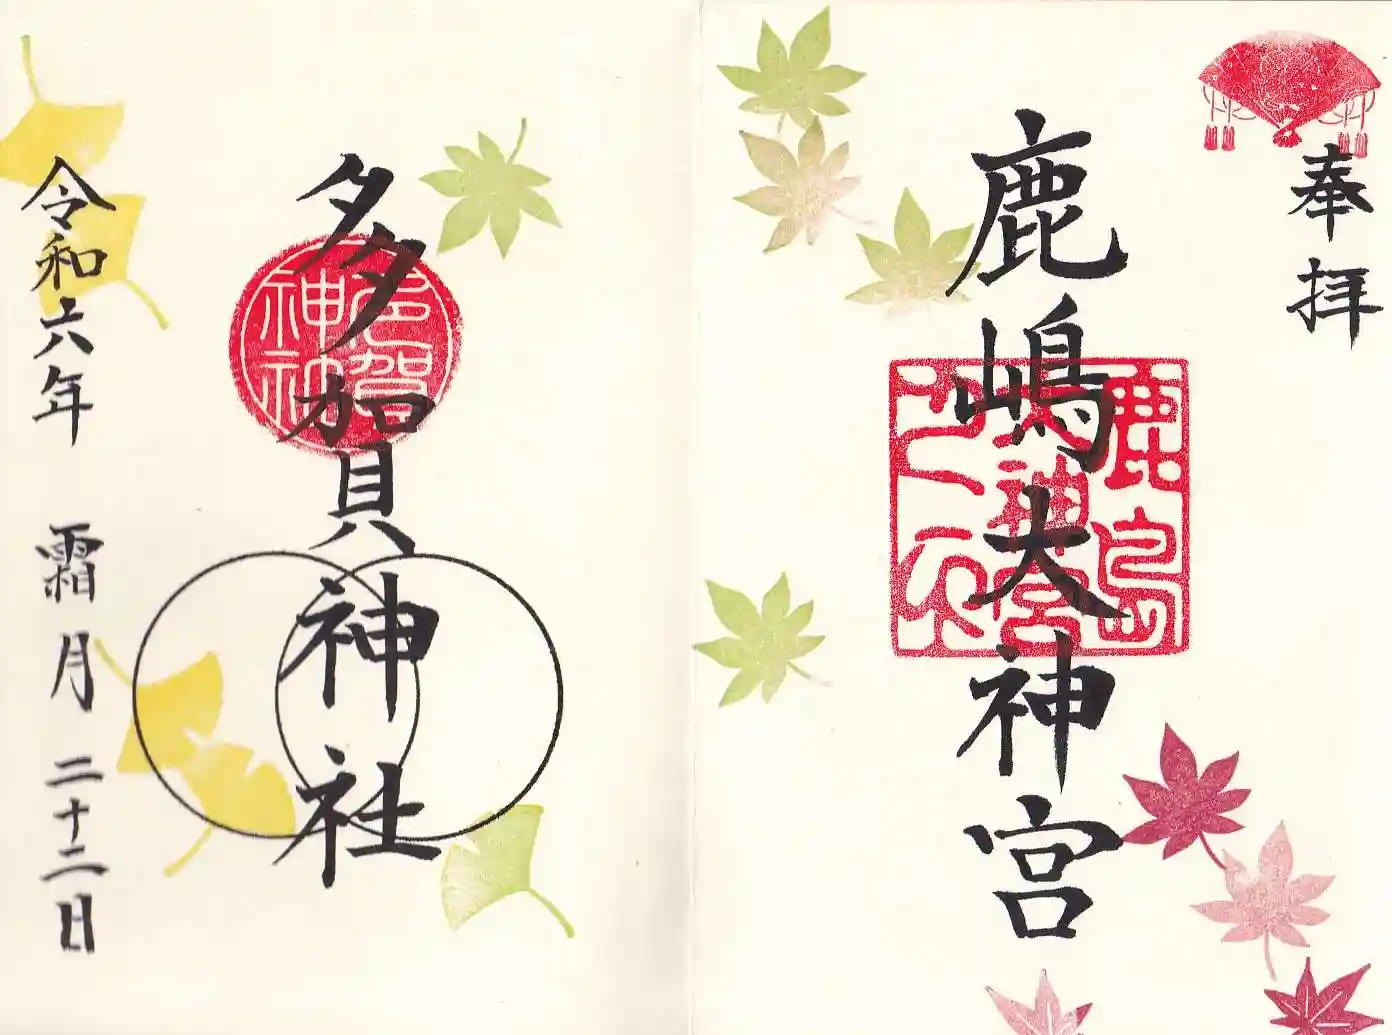 奉拝
鹿嶋大神宮
鹿島神宮
多賀神社
多賀神社
令和六年 霜月 二十二日